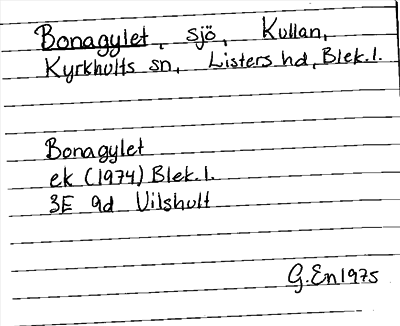 Bonagylet, sjö, Kullan,
Kyrkhults sn, Listers hd, Blek.l.
Bonagylet
ek (1974) Blek.l.
3E 9d Vilshult
G.En 1975